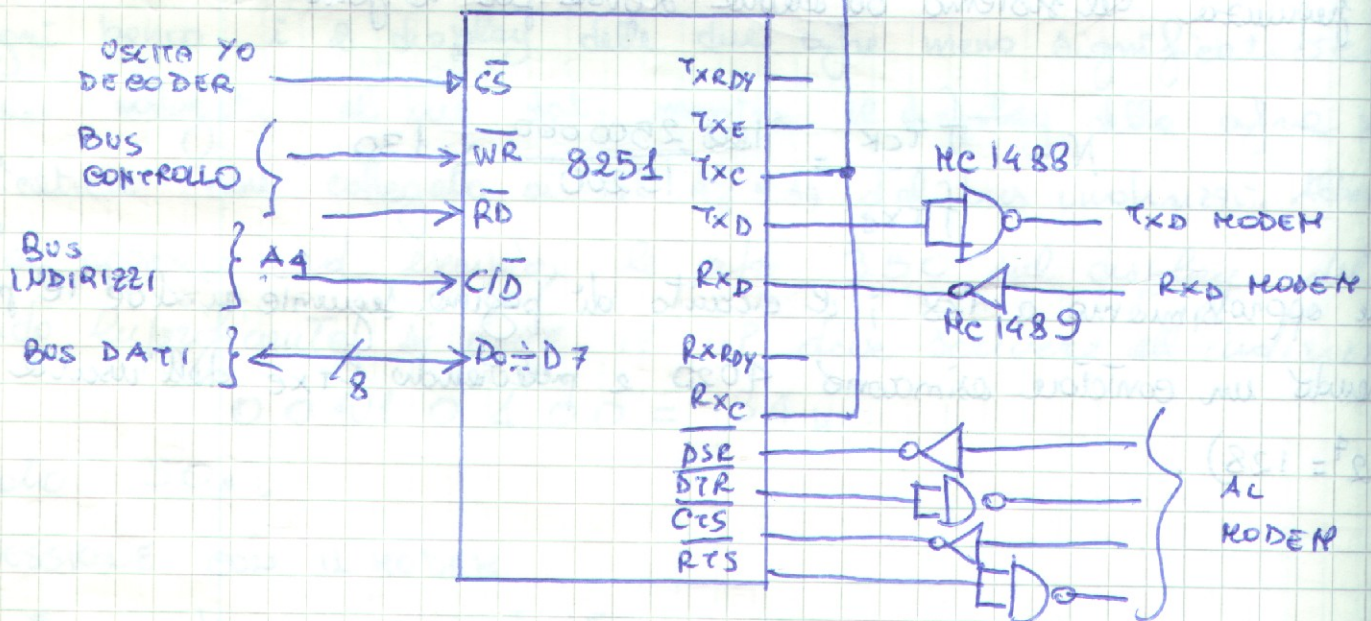 USCITA Y0
DECODER
BUS
CONTROLLO
BUS
INDIRIZZI
A4
BUS DATI
8
CS
WR
RD
C/D
D0÷D7
8251
TXRDY
TXE
TXC
TXD
RXD
RXRDY
RXC
DSR
DTR
CTS
RTS
MC 1488
TXD MODEM
RXD MODEM
MC 1489
AL
MODEM